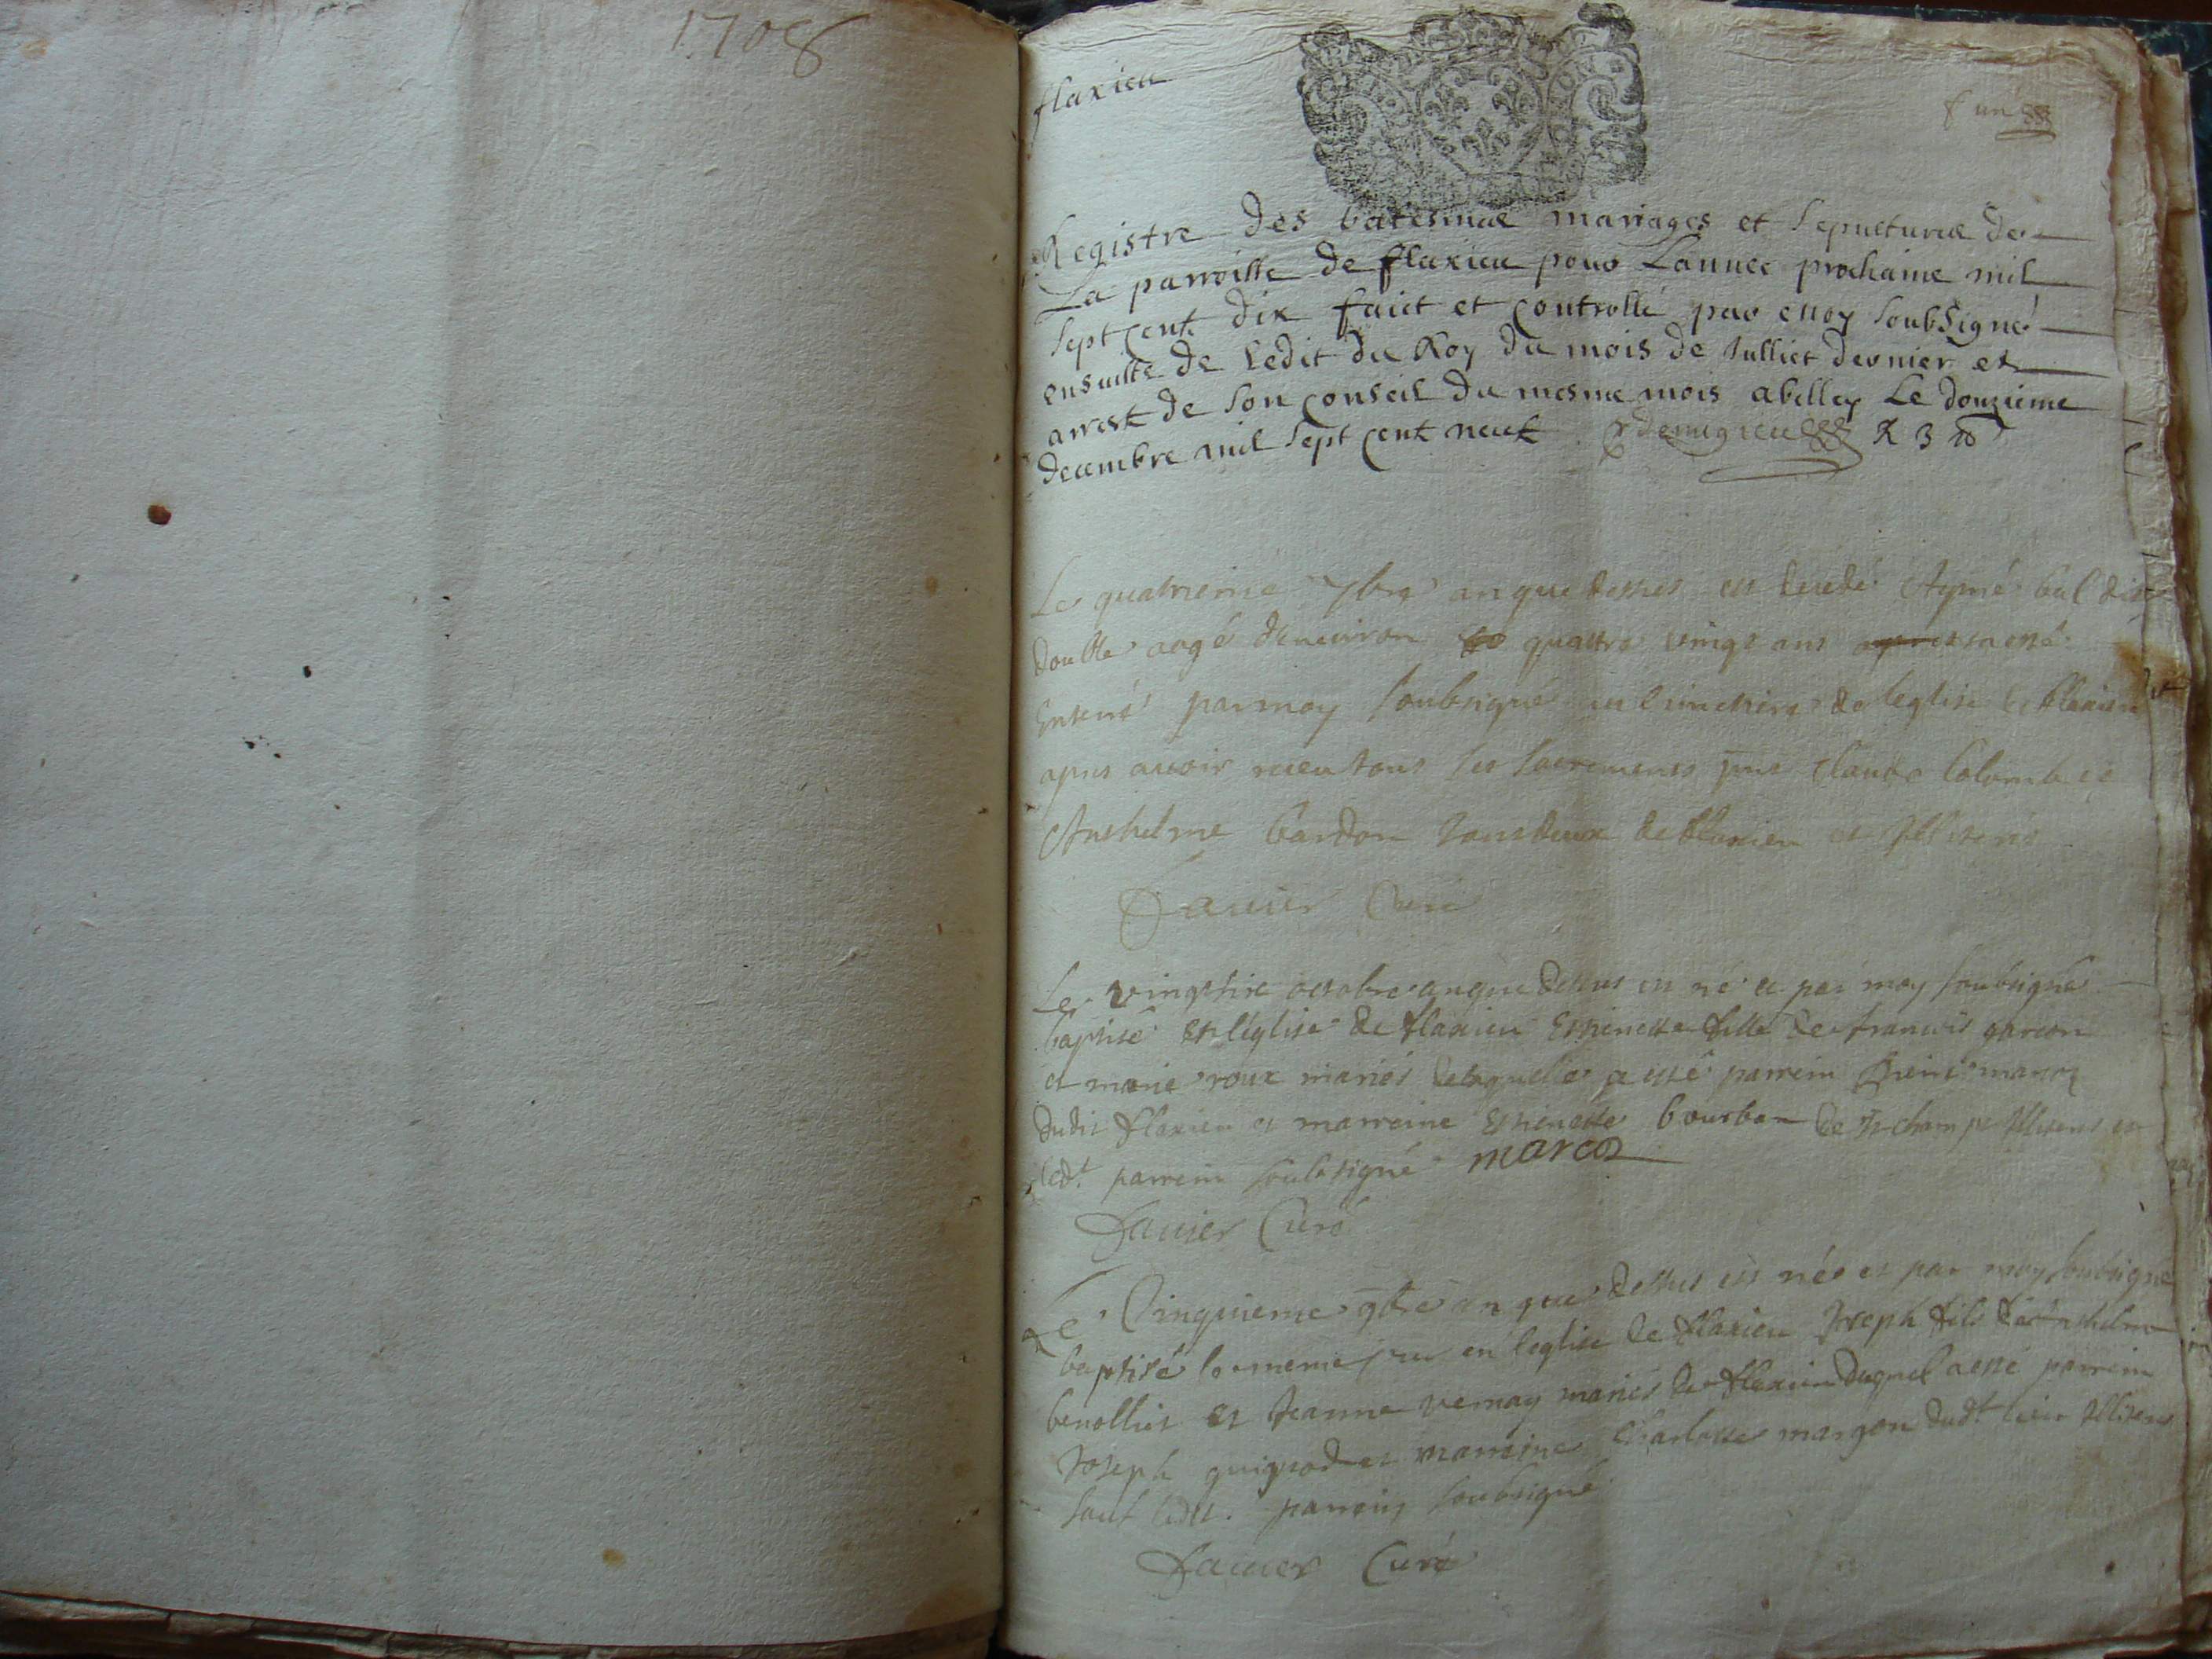 1708
flaxieu
f un
Registre des batesmæ mariages et sepulturæ de
La parroisse de flaxieu pour Lannee prochaine mil
sept cent dix faict et controllé par moy soubsigné
ensuitte de Ledit du Roy du mois de Julliet dernier et
arrest de son conseil du mesme mois abelley Le douzieme
decembre mil sept cent neuf R 3
Le quatrieme 7bre an que dessus est decedé Aymé bal dit
doultte aagé denuiron quattre vings ans et a esté
Enterré par moy soubsigné au cimetiere de leglise de flaxieu
apres auoir receu tous les sacrements pnts Claude Colomb et
Anthelme bardon tous deux de flaxieu et illiterés
Fauier Curé
Le vingt six octobre an que dessus est né et par moy soubsigné
baptisé en léglise de flaxieu Espinette fille de francois garcon
et marie roux mariés de laquelle a esté parrein marcoz
dudit flaxieu et marreine Espinette bourbon de illiterés
led.t parrein soubsigné marcoz
Fauier Curé
Le Cinquieme 9bre an que dessus est né et par moy soubsigné
baptisé le meme jour en leglise de flaxieu Joseph fils de Anthelme
benollict et Jeanne vernay mariés de flaxieu duquel a esté parrein
Joseph guigrod et marreine Charlotte margon dudt lieu illiterés
sauf ledt. parrein soubsigné
Fauier Curé